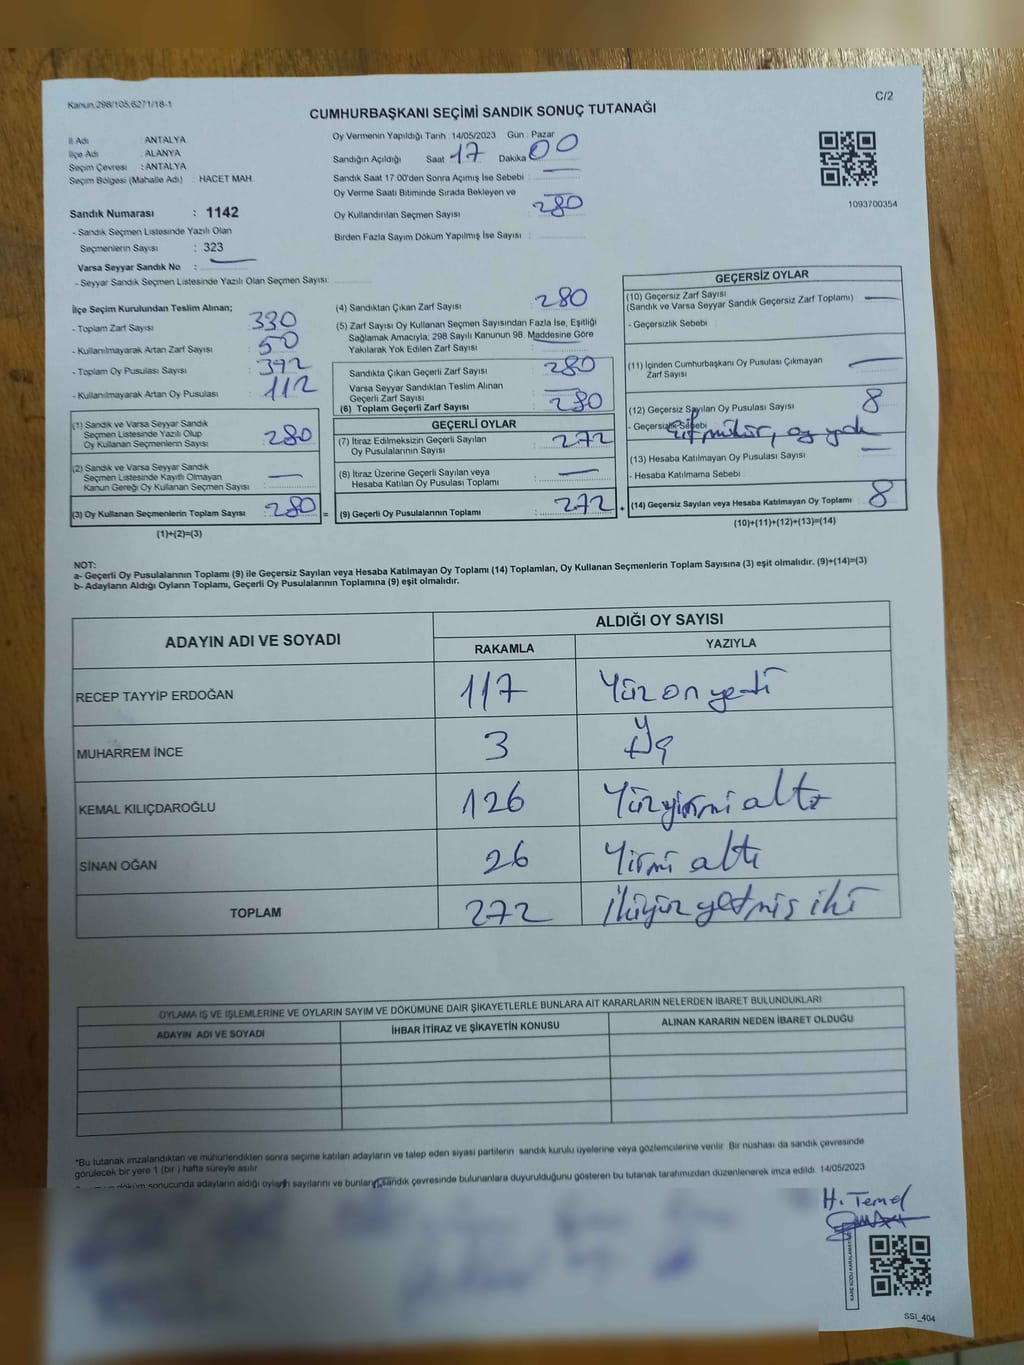 Kanun,298/105,6271/18-1
C/2
CUMHURBAŞKANI SEÇİMİ SANDIK SONUÇ TUTANAĞI
İl Adı : ANTALYA
İlçe Adı : ALANYA
Seçim Çevresi : ANTALYA
Seçim Bölgesi (Mahalle Adı) : HACET MAH.
Sandık Numarası : 1142
- Sandık Seçmen Listesinde Yazılı Olan
Seçmenlerin Sayısı : 323
Varsa Seyyar Sandık No :
- Seyyar Sandık Seçmen Listesinde Yazılı Olan Seçmen Sayısı:
Oy Vermenin Yapıldığı Tarih : 14/05/2023 Gün : Pazar
Sandığın Açıldığı Saat 17 Dakika 00
Sandık Saat 17:00'den Sonra Açımış İse Sebebi : —
Oy Verme Saati Bitiminde Sırada Bekleyen ve
Oy Kullandırılan Seçmen Sayısı : 280
Birden Fazla Sayım Döküm Yapılmış İse Sayısı :
1093700354
İlçe Seçim Kurulundan Teslim Alınan;
- Toplam Zarf Sayısı : 330
- Kullanılmayarak Artan Zarf Sayısı : 50
- Toplam Oy Pusulası Sayısı : 392
- Kullanılmayarak Artan Oy Pusulası : 112
(1) Sandık ve Varsa Seyyar Sandık
Seçmen Listesinde Yazılı Olup
Oy Kullanan Seçmenlerin Sayısı : 280
(2) Sandık ve Varsa Seyyar Sandık
Seçmen Listesinde Kayıtlı Olmayan
Kanun Gereği Oy Kullanan Seçmen Sayısı : —
(3) Oy Kullanan Seçmenlerin Toplam Sayısı : 280 =
(1)+(2)=(3)
(4) Sandıktan Çıkan Zarf Sayısı : 280
(5) Zarf Sayısı Oy Kullanan Seçmen Sayısından Fazla İse, Eşitliği
Sağlamak Amacıyla; 298 Sayılı Kanunun 98. Maddesine Göre
Yakılarak Yok Edilen Zarf Sayısı : —
Sandıkta Çıkan Geçerli Zarf Sayısı : 280
Varsa Seyyar Sandıktan Teslim Alınan
Geçerli Zarf Sayısı : —
(6) Toplam Geçerli Zarf Sayısı : 280
GEÇERLİ OYLAR
(7) İtiraz Edilmeksizin Geçerli Sayılan
Oy Pusulasının Sayısı : 272
(8) İtiraz Üzerine Geçerli Sayılan veya
Hesaba Katılan Oy Pusulası Toplamı : —
(9) Geçerli Oy Pusulalarının Toplamı : 272 +
GEÇERSİZ OYLAR
(10) Geçersiz Zarf Sayısı
(Sandık ve Varsa Seyyar Sandık Geçersiz Zarf Toplamı) —
- Geçersizlik Sebebi :
(11) İçinden Cumhurbaşkanı Oy Pusulası Çıkmayan
Zarf Sayısı —
(12) Geçersiz Sayılan Oy Pusulası Sayısı : 8
- Geçersizlik Sebebi mühür, oy yok
(13) Hesaba Katılmayan Oy Pusulası Sayısı : —
- Hesaba Katılmama Sebebi :
(14) Geçersiz Sayılan veya Hesaba Katılmayan Oy Toplamı : 8
(10)+(11)+(12)+(13)=(14)
NOT:
a- Geçerli Oy Pusulalarının Toplamı (9) ile Geçersiz Sayılan veya Hesaba Katılmayan Oy Toplamı (14) Toplamları, Oy Kullanan Seçmenlerin Toplam Sayısına (3) eşit olmalıdır. (9)+(14)=(3)
b- Adayların Aldığı Oyların Toplamı, Geçerli Oy Pusulalarının Toplamına (9) eşit olmalıdır.
ADAYIN ADI VE SOYADI
ALDIĞI OY SAYISI
RAKAMLA YAZIYLA
RECEP TAYYİP ERDOĞAN 117 Yüz on yedi
MUHARREM İNCE 3 Üç
KEMAL KILIÇDAROĞLU 126 Yüzyirmi altı
SİNAN OĞAN 26 Yirmi altı
TOPLAM 272 İkiyüz yetmiş iki
OYLAMA İŞ VE İŞLEMLERİNE VE OYLARIN SAYIM VE DÖKÜMÜNE DAİR ŞİKAYETLERLE BUNLARA AİT KARARLARIN NELERDEN İBARET BULUNDUKLARI
ADAYIN ADI VE SOYADI İHBAR İTİRAZ VE ŞİKAYETİN KONUSU ALINAN KARARIN NEDEN İBARET OLDUĞU
*Bu tutanak imzalandıktan ve mühürlendikten sonra seçime katılan adayların ve talep eden siyasi partilerin sandık kurulu üyelerine veya gözlemcilerine verilir. Bir nüshası da sandık çevresinde
görülecek bir yere 1 (bir ) hafta süreyle asılır.
döküm sonucunda adayların aldığı oyların sayılarını ve bunların sandık çevresinde bulunanlara duyurulduğunu gösteren bu tutanak tarafımızdan düzenlenerek imza edildi. 14/05/2023
H. Temel
SSI_404